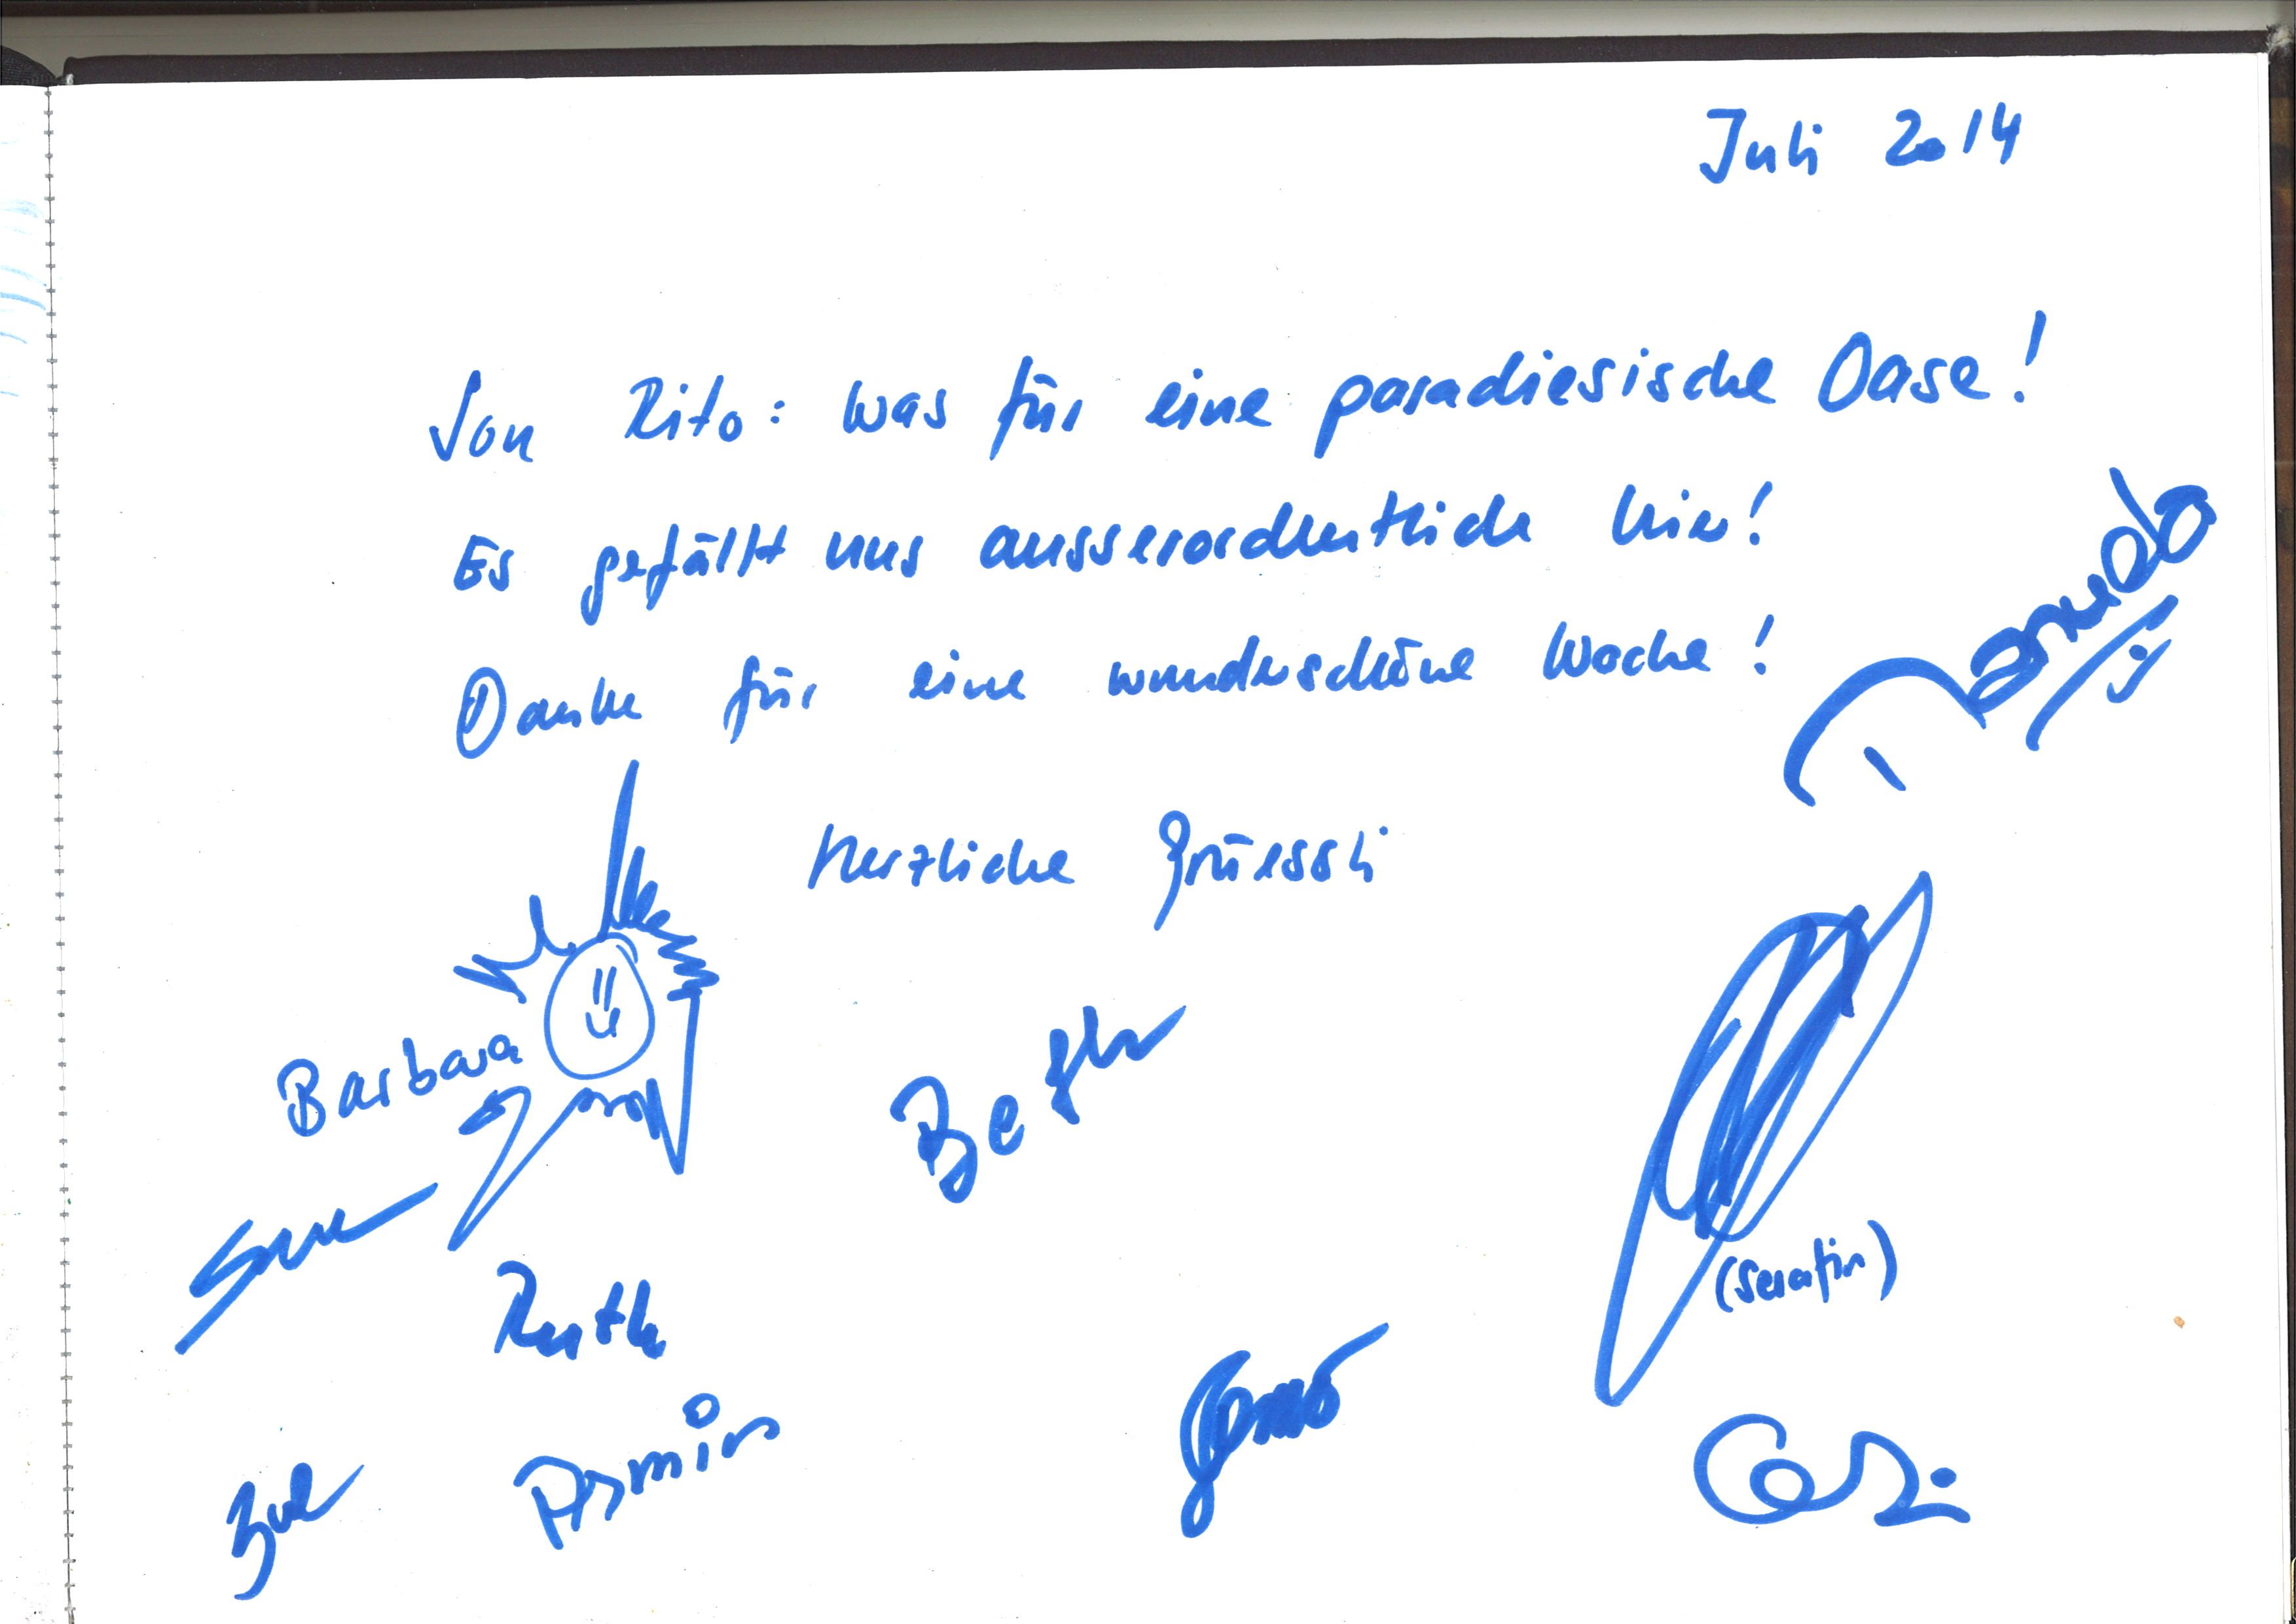 Juli 2014
Son Rito: Was für eine paradiesische Oase!
Es gefällt uns ausserordentlich hier!
Danke für eine wunderschöne Woche!
Herzliche Grüessli
Barbara
Ruth
(Serafin)
Armin